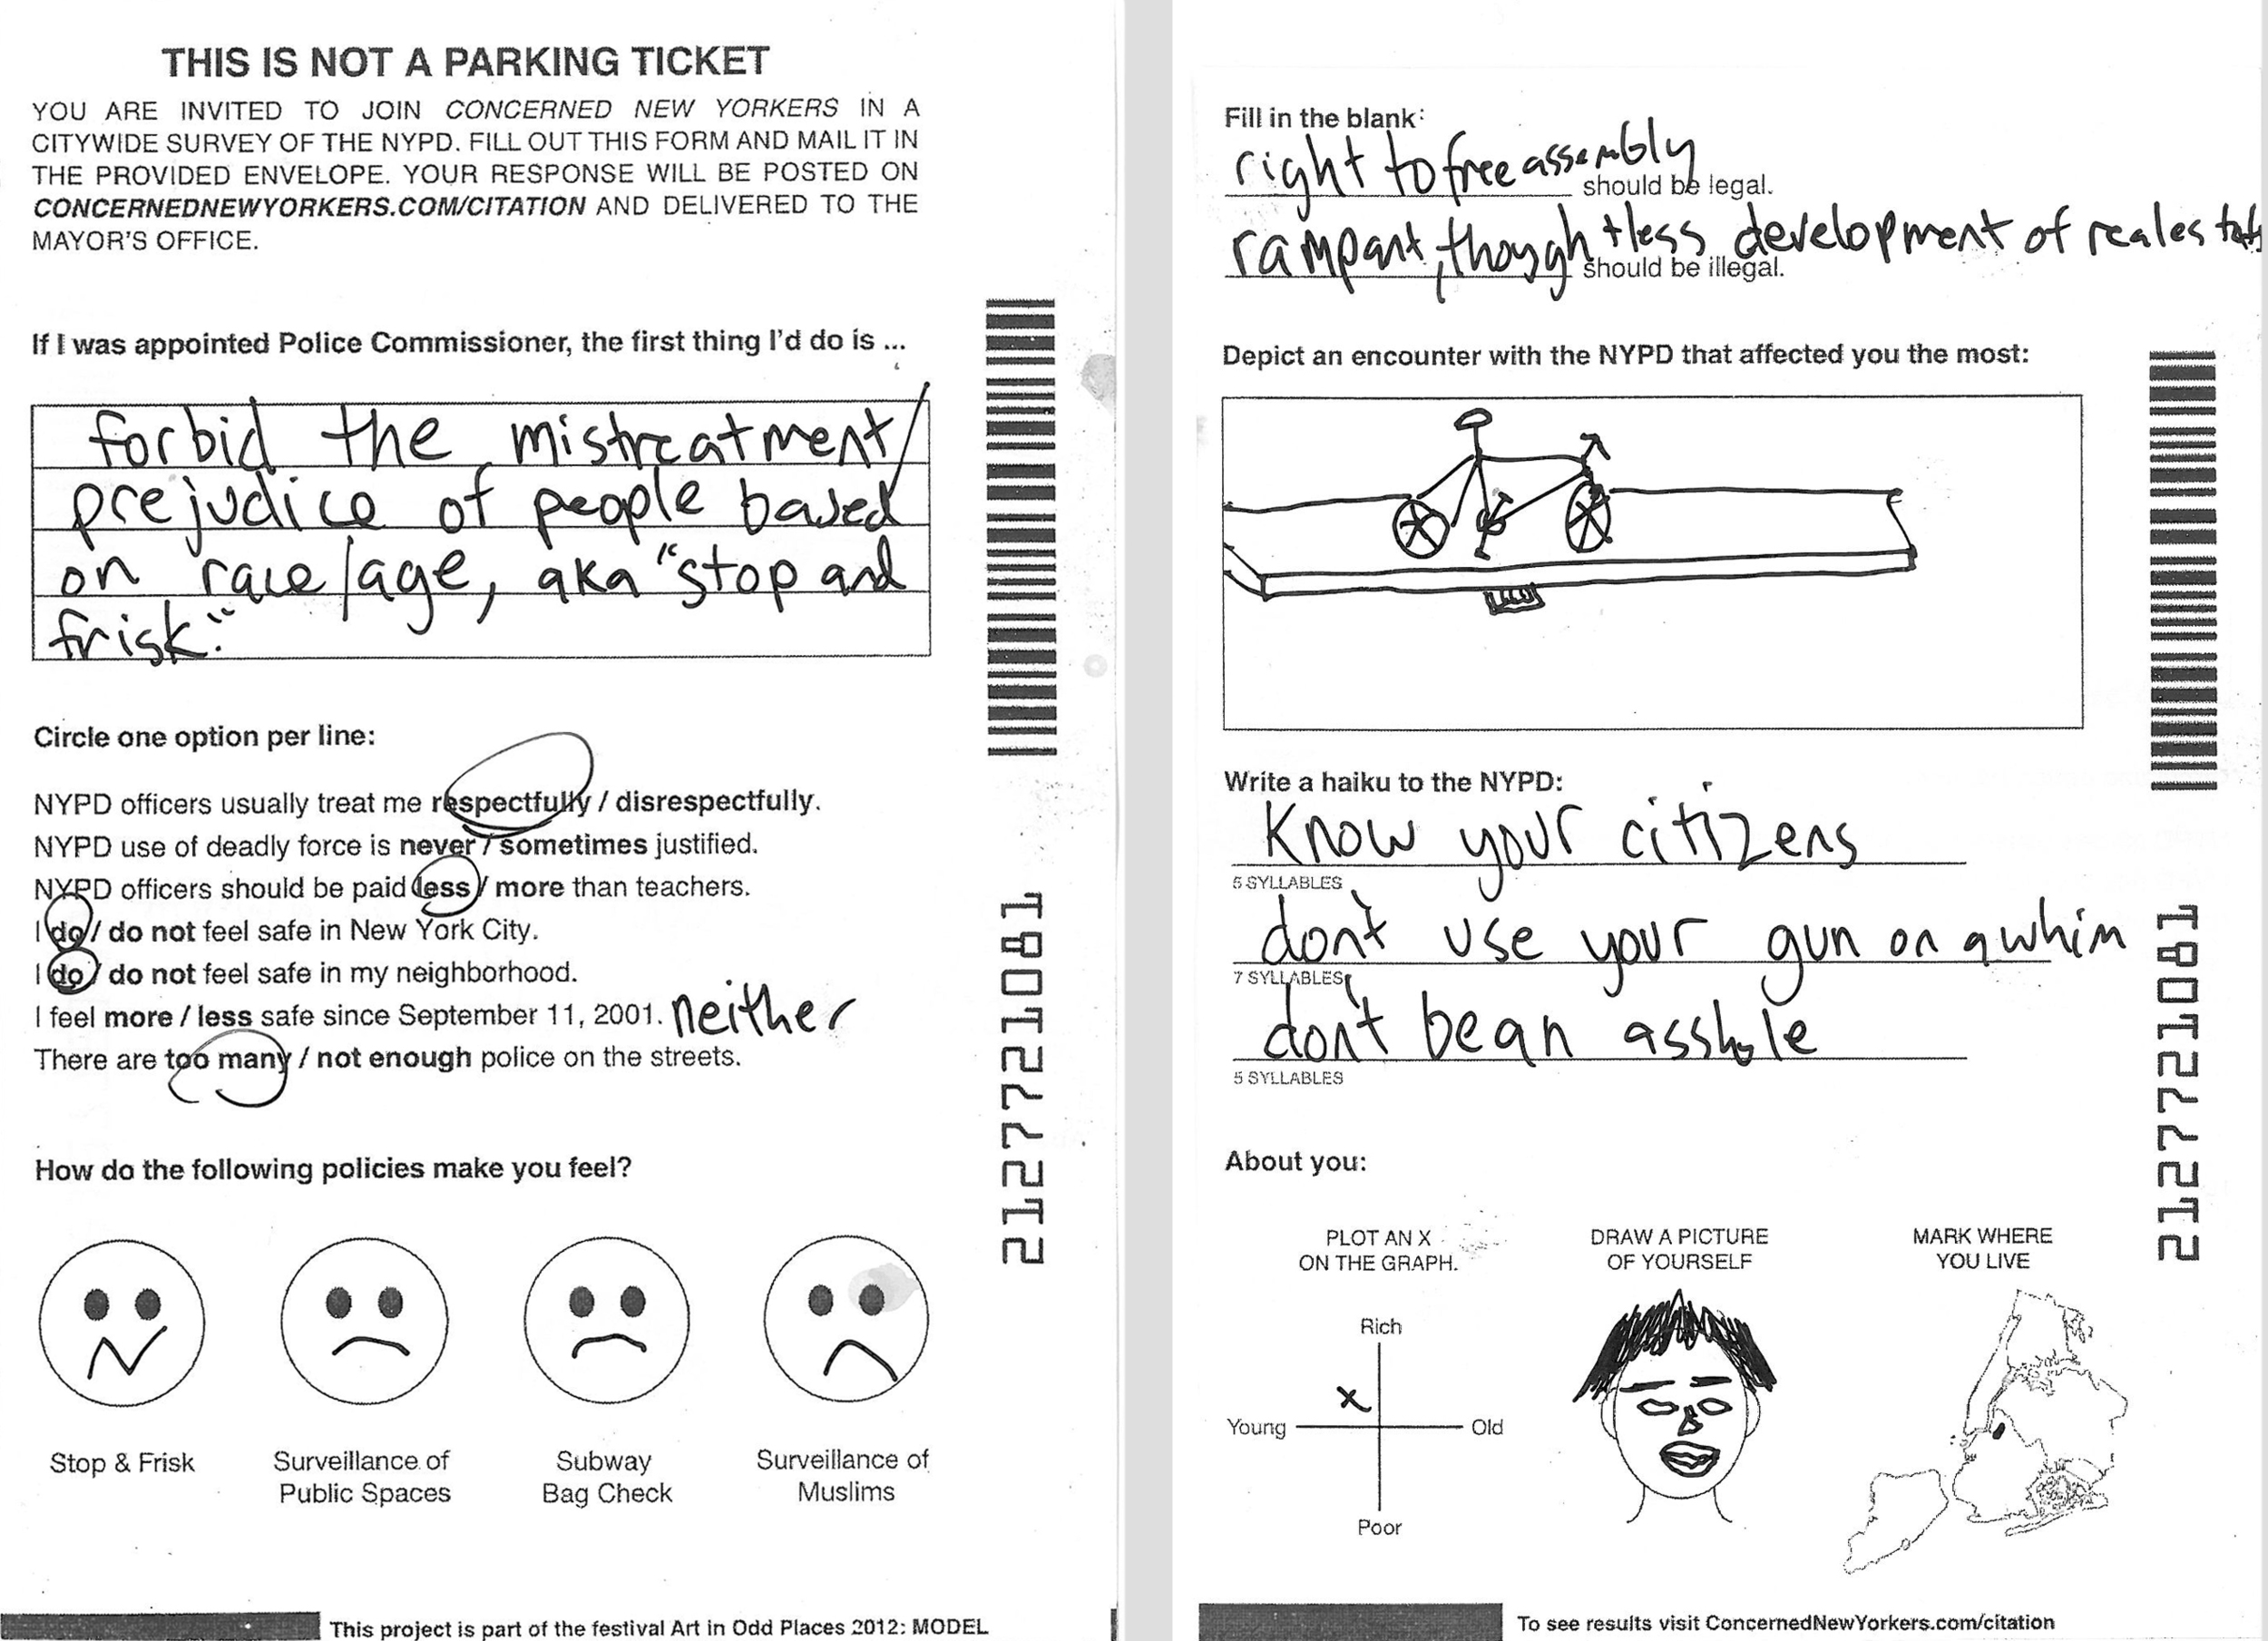 THIS IS NOT A PARKING TICKET
YOU ARE INVITED TO JOIN CONCERNED NEW YORKERS IN A
CITYWIDE SURVEY OF THE NYPD. FILL OUT THIS FORM AND MAIL IT IN
THE PROVIDED ENVELOPE. YOUR RESPONSE WILL BE POSTED ON
CONCERNEDNEWYORKERS.COM/CITATION AND DELIVERED TO THE
MAYOR'S OFFICE.
If I was appointed Police Commissioner, the first thing I'd do is ...
forbid the mistreatment/
prejudice of people based
on race/age, aka "stop and
frisk."
Circle one option per line:
NYPD officers usually treat me respectfully / disrespectfully.
NYPD use of deadly force is never / sometimes justified.
NYPD officers should be paid less / more than teachers.
I do / do not feel safe in New York City.
I do / do not feel safe in my neighborhood.
I feel more / less safe since September 11, 2001. neither
There are too many / not enough police on the streets.
How do the following policies make you feel?
Stop & Frisk
Surveillance of
Public Spaces
Subway
Bag Check
Surveillance of
Muslims
212772101081
This project is part of the festival Art in Odd Places 2012: MODEL
Fill in the blank:
right to free assembly should be legal.
rampant, thoughtless development of real estate
should be illegal.
Depict an encounter with the NYPD that affected you the most:
Write a haiku to the NYPD:
Know your citizens
5 SYLLABLES
don't use your gun on a whim
7 SYLLABLES
don't be an asshole
5 SYLLABLES
About you:
PLOT AN X
ON THE GRAPH.
Rich
Young
Old
Poor
DRAW A PICTURE
OF YOURSELF
MARK WHERE
YOU LIVE
212772101081
To see results visit ConcernedNewYorkers.com/citation